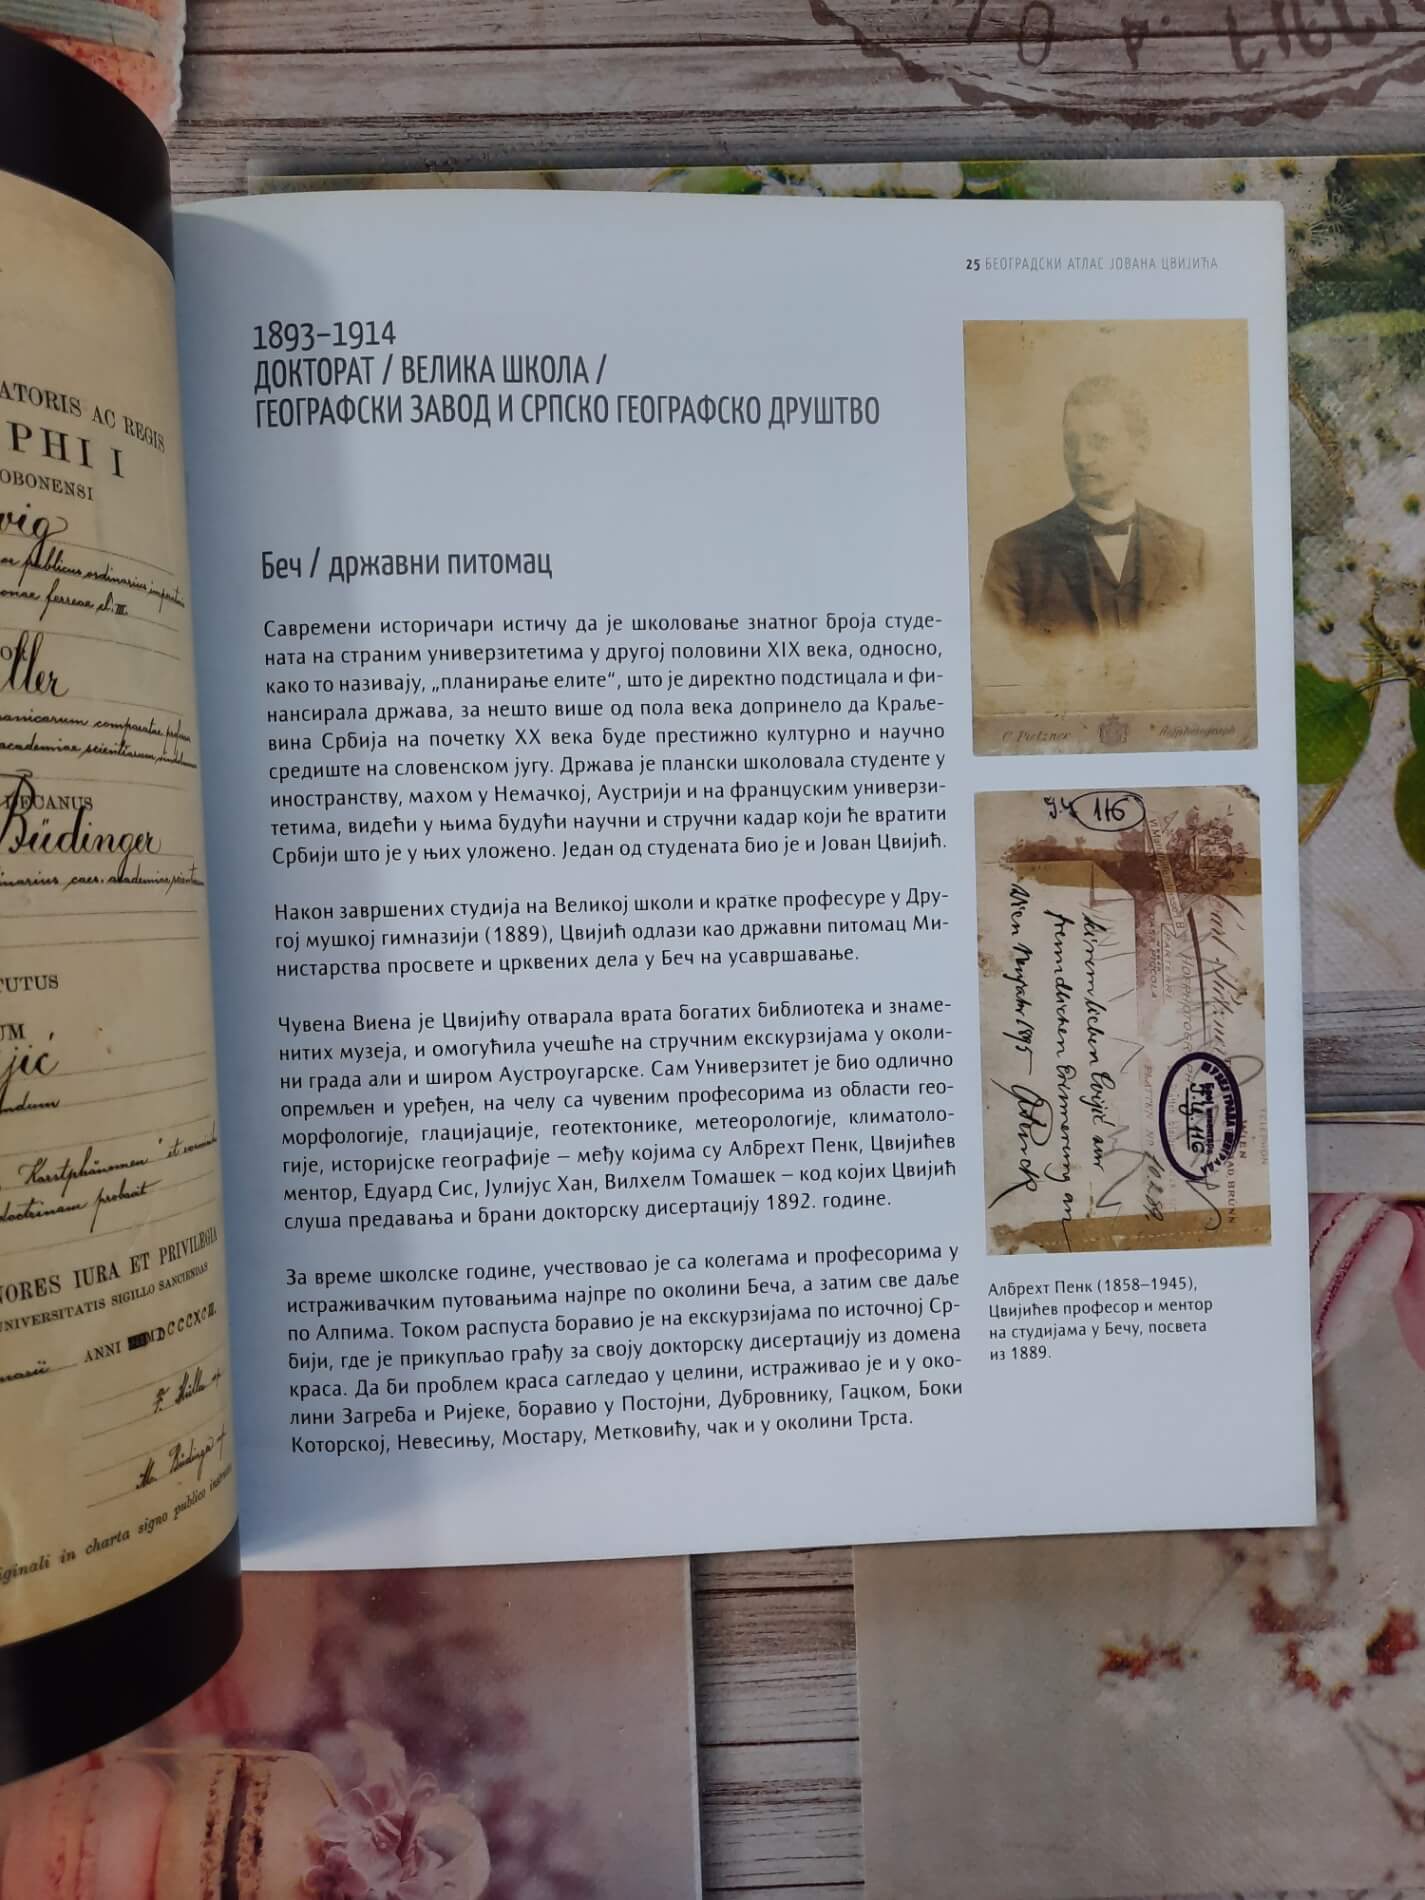 ATORIS AC REGIS
PHI I
OBONENSI
DECANUS
Büdinger
TUTUS
UM
"Karstphänomen" et
doctrinam probavit
NORES IURA ET PRIVILEGIA
UNIVERSITATIS SIGILLO SANCIENDAS
ANNI
iginali in charta signo publico
25 БЕОГРАДСКИ АТЛАС ЈОВАНА ЦВИЈИЋА
1893–1914
ДОКТОРАТ / ВЕЛИКА ШКОЛА /
ГЕОГРАФСКИ ЗАВОД И СРПСКО ГЕОГРАФСКО ДРУШТВО
Беч / државни питомац
Савремени историчари истичу да је школовање знатног броја студе-
ната на страним универзитетима у другој половини XIX века, односно,
како то називају, „планирање елите“, што је директно подстицала и фи-
нансирала држава, за нешто више од пола века допринело да Краље-
вина Србија на почетку XX века буде престижно културно и научно
средиште на словенском југу. Држава је плански школовала студенте у
иностранству, махом у Немачкој, Аустрији и на француским универзи-
тетима, видећи у њима будући научни и стручни кадар који ће вратити
Србији што је у њих уложено. Један од студената био је и Јован Цвијић.
Након завршених студија на Великој школи и кратке професуре у Дру-
гој мушкој гимназији (1889), Цвијић одлази као државни питомац Ми-
нистарства просвете и црквених дела у Беч на усавршавање.
Чувена Виена је Цвијићу отварала врата богатих библиотека и знаме-
нитих музеја, и омогућила учешће на стручним екскурзијама у околи-
ни града али и широм Аустроугарске. Сам Универзитет је био одлично
опремљен и уређен, на челу са чувеним професорима из области гео-
морфологије, глацијације, геотектонике, метеорологије, климатоло-
гије, историјске географије – међу којима су Албрехт Пенк, Цвијићев
ментор, Едуард Сис, Јулијус Хан, Вилхелм Томашек – код којих Цвијић
слуша предавања и брани докторску дисертацију 1892. године.
За време школске године, учествовао је са колегама и професорима у
истраживачким путовањима најпре по околини Беча, а затим све даље
по Алпима. Током распуста боравио је на екскурзијама по источној Ср-
бији, где је прикупљао грађу за своју докторску дисертацију из домена
краса. Да би проблем краса сагледао у целини, истраживао је и у око-
лини Загреба и Ријеке, боравио у Постојни, Дубровнику, Гацком, Боки
Которској, Невесињу, Мостару, Метковићу, чак и у околини Трста.
C. Pietzner
116
Seinem lieben Cvijić zur
freundlichen Erinnerung an
Wien Neujahr 1895
WIEN
BRUNN
TELEPHON
Албрехт Пенк (1858–1945),
Цвијићев професор и ментор
на студијама у Бечу, посвета
из 1889.